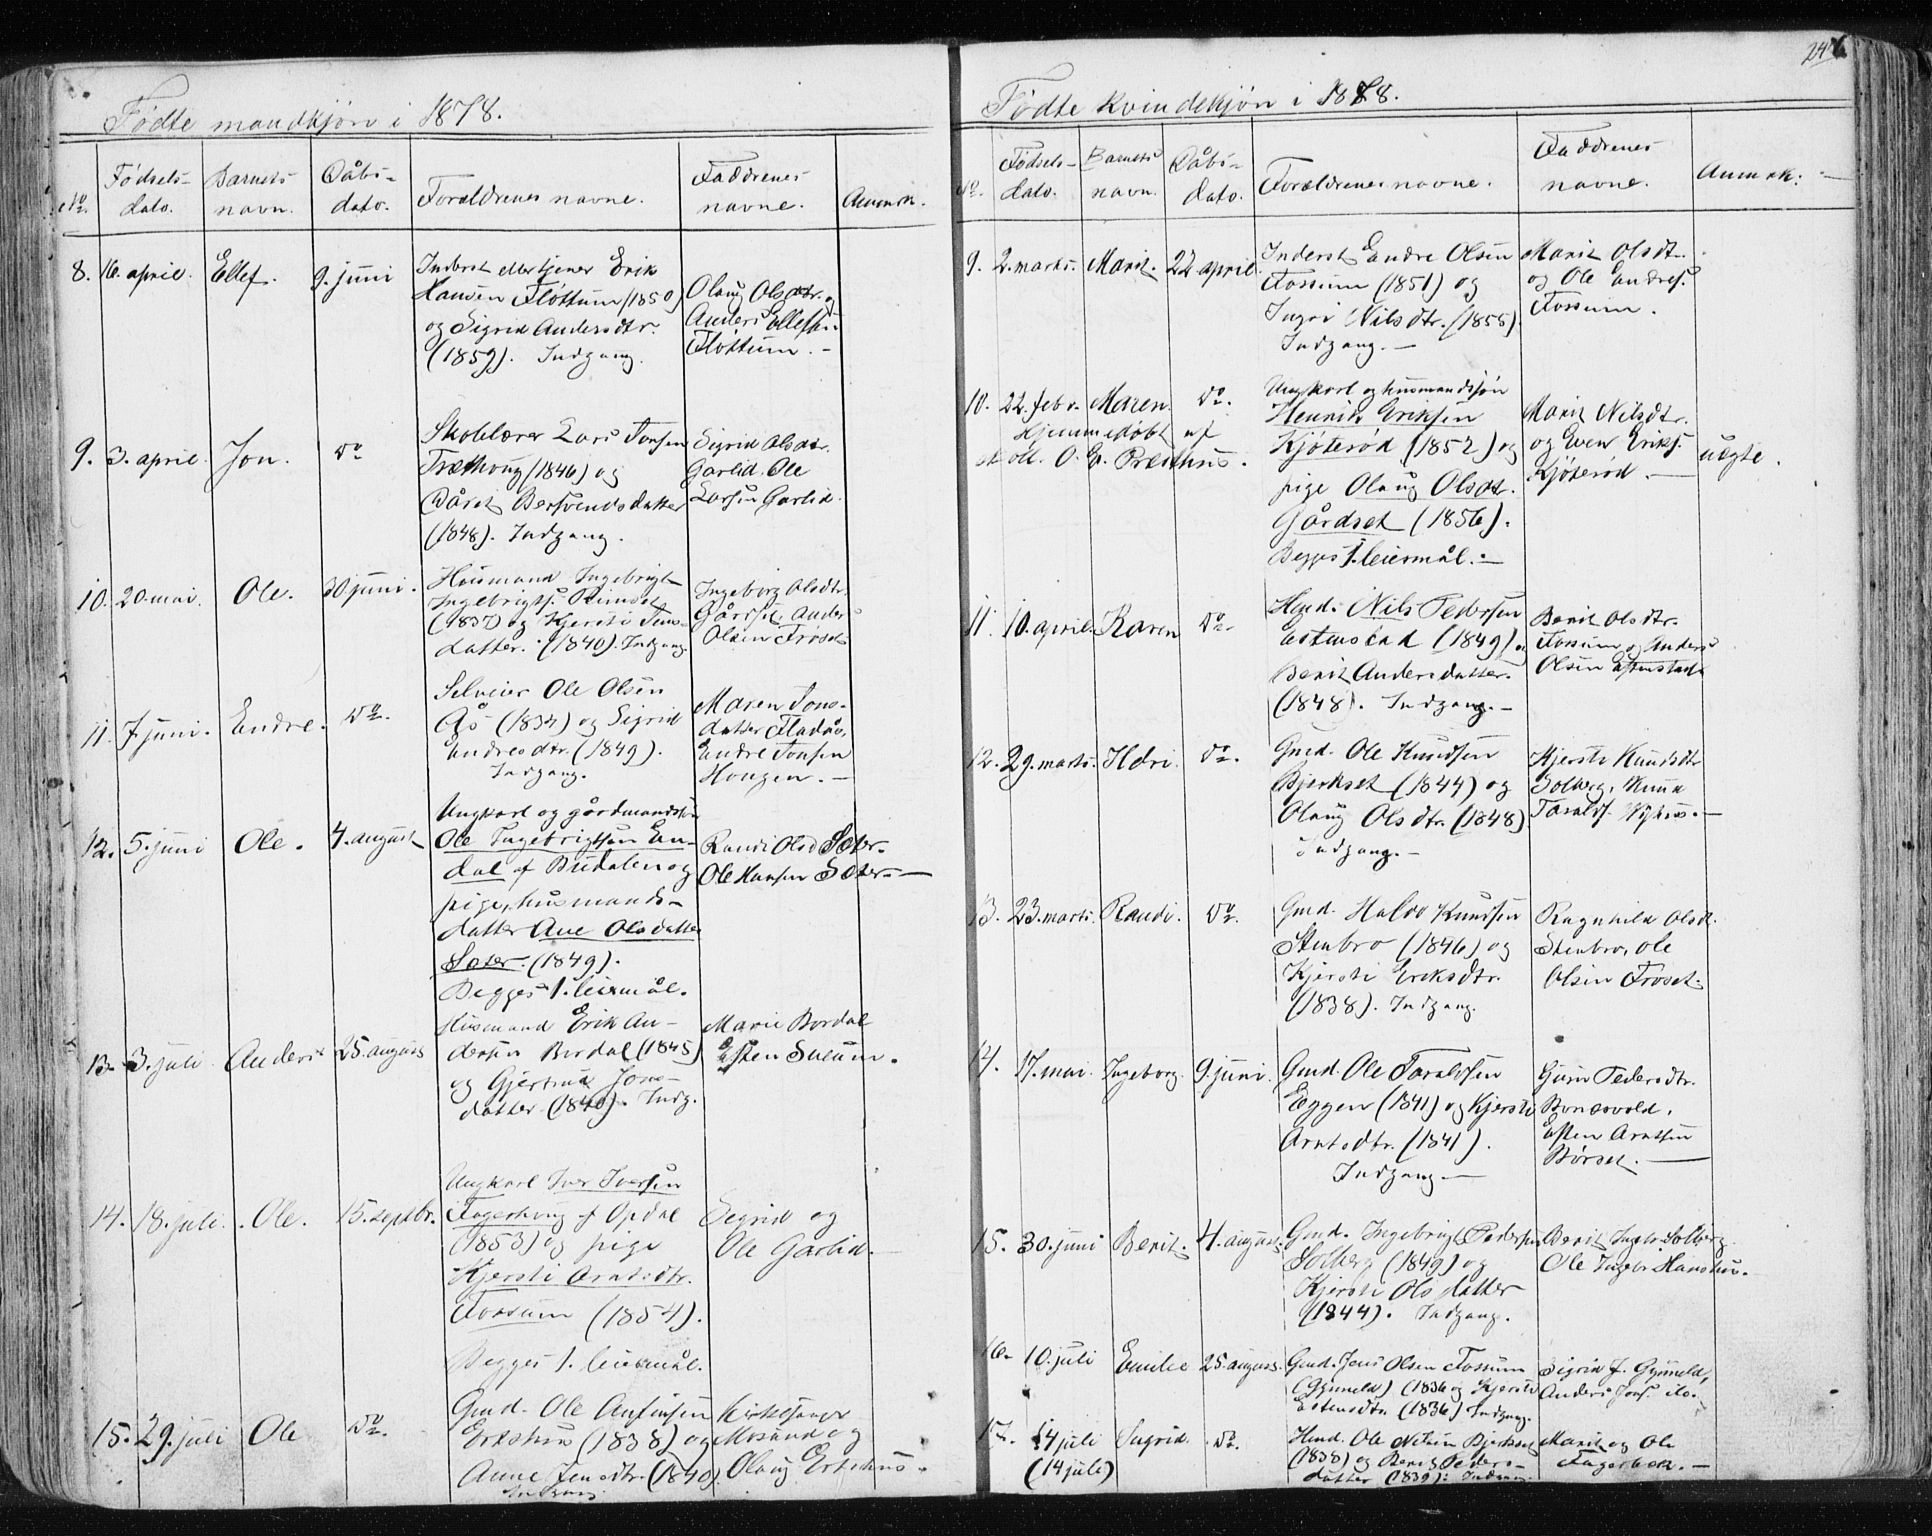 246
Fødte mandkjøn i 1878.
No.
Fødsels-
dato.
Barnets
navn.
Dåbs-
dato.
Forældrenes navne.
Faddrenes
navne.
Anmrk.
8. 16. april. Ellef. 9. juni
Inderst eller tjener Erik
Hansen Fløttum (1850)
og Sigrid Andersdtr.
(1859). Indgang.
Olaug Olsdtr. og
Anders Ellefsen
Fløttum. -
9. 3. april. Jon. do
Skolelærer Lars Jonsen
Træthoug (1846) og
Dåret Bersvendsdatter
(1848). Indgang.
Sigrid Olsdtr.
Garlid. Ole
Larsen Garlid.
10. 20. mai. Ole. 30 juni.
Husmand Ingebrigt
Ingebrigts.
(1837) og Kjersti Jens-
datter. (1840). Indgang.
Ingeborg Olsdtr.
Gårdset, Anders
Olsen Froset
11. 7 juni. Endre. do.
Selveier Ole Olsen
Ås (1834) og Sigrid
Endresdtr. (1849).
Indgang.
Maren Jons-
datter Fladås,
Endre Jonsen
Hougen. -
12. 5. juni Ole. 4. august
Ungkarl og gårdmandssøn
Ole Ingebrigtsen En-
dal af Budalen og
pige, husmands-
datter Ane Olsdatter
Sæter. (1849).
Begges 1. leiermål.
Randi Olsd Sæter.
Ole Hansen Sæter. -
13. 3. juli Anders 25. august
Husmand Erik An-
dersen Bordal (1845)
og Gjertrud Jons-
datter (1840). Indg.
Marie Bordal
Esten Sneum.
14. 18. juli. Ole. 15. septbr.
Ungkarl Iver Iversen
Fagerhoug af Opdal
(1853) og pige
Kjersti Arntsdtr.
Fossum (1854).
Begges 1. leiermål.
Sigrid og
Ole Garlid. -
15. 29. juli Ole do.
Gmd. Ole Anfinsen
Erkshus (1838) og
Anne Jensdtr. (1840)
Indgang.
Kirkesanger
Mosand og
Olaug Erkshus.
Fødte kvindekjøn i 1878.
No.
Fødsels-
dato.
Barnets
navn.
Dåbs-
dato.
Forældrenes navne.
Faddrenes
navne.
Anmrk: -
9. 2. marts. Marit. 22 april.
Inderst Endre Olsen
Fossum (1851) og
Ingri Nilsdtr. (1855)
Indgang. -
Marit Olsdt.
og Ole Endres.
Fossum.
10. 22. febr. Maren. do.
Hjemmedøbt af
skoll. O. E. Præsthus.
Ungkarl og husmandssøn
Henrik Eriksen
Kjøterød (1852) og
pige Olaug Olsdt.
Gårdset (1856).
Begges 1. leiermål. -
Marit Nilsdtr.
og Even Eriks.
Kjøterød. -
uægte.
11. 10. april. Karen do.
Hmd. Nils Pedersen
Estenstad (1849) og
Berit Andersdatter.
(1848). Indgang. -
Berit Olsdtr.
Fossum og Anders
Olsen Estenstad
12. 29. marts. Ildri. do.
Gmd. Ole Knudsen
Bjerkset (1844) og
Olaug Olsdtr. (1848)
Indgang. -
Kjersti Knudsdtr
Solberg, Knud
Taralds. Nyhus. -
13. 23. marts. Randi. do.
Gmd. Halvo Knudsen
Stenbro (1846) og
Kjersti Eriksdtr.
(1838). Indgang.
Ragnhild Olsd.
Stenbro, Ole
Olsen Froset.
14. 17. mai. Ingeborg. 9. juni.
Gmd. Ole Taraldsen
Eggen (1841) og Kjersti
Arntsdtr. (1841).
Indgang. -
Guru Pedersdtr.
Bonesvold,
Esten Arntsen
Børset. -
15. 30. juni Berit. 4. august.
Gmd. Ingebrigt Pedersen
Solberg (1849) og
Kjersti Olsdatter
(1844). Indgang.
Berit Ingebr. Solberg
Ole Ingebr. Hanshus.
16. 10. juli Emilie 25. august.
Gmd. Jens Olsen Fossum
(Gynneld) (1836 og Kjersti
Estensdtr. (1836) Indgang.
Sigrid J. Gynneld,
Anders Jons. do.
17. 14 juli
(14 juli)
Ingrid. do.
Hmd. Ole Nilsen Bjerkset
(1838) og Berit Peders-
datter (1839): Indgang.
Marit og Ole
Fagerbek. -